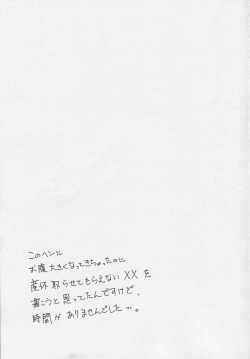 このヘンに
お腹大きくなってきちゃったのに
産休取らせてもらえない××を
書こうと思ってたんですけど、
時間がありませんでした…。